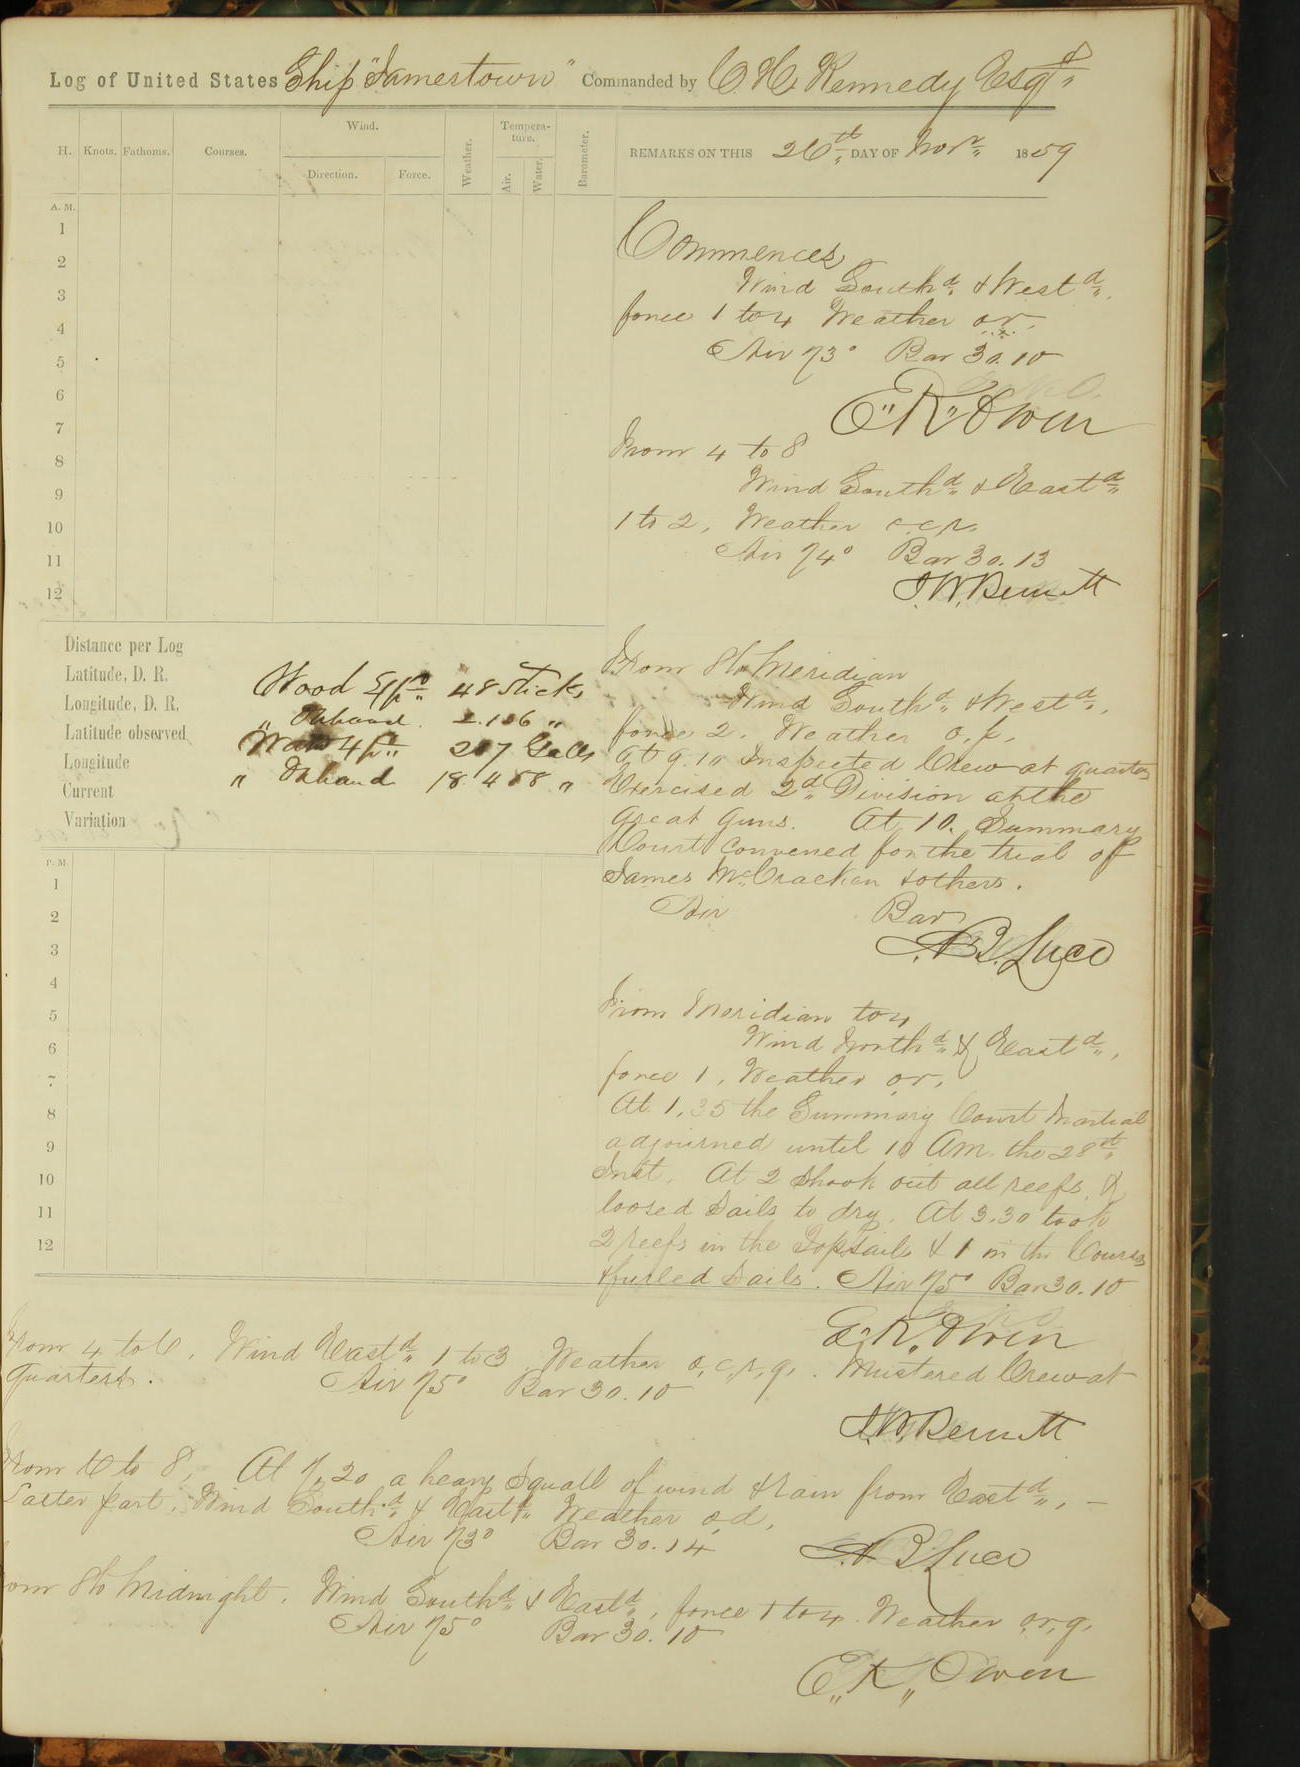 Log of United States Ship "Jamestown" Commanded by C. H. Kennedy Esqr
H. Knots. Fathoms. Courses. Wind. Direction. Force. Weather. Tempera-ture. Air. Water. Barometer.
REMARKS ON THIS 26th DAY OF Novr 1859
A. M.
1
2
3
4
5
6
7
8
9
10
11
12
Commences
Wind Southd & Westd,
force 1 to 4 Weather o.r.
Air 73° Bar 30.10
E. K. Owen
From 4 to 8
Wind Southd & Eastd
1 to 2, Weather o.c.r.
Air 74° Bar 30.13
Distance per Log
Latitude, D. R.
Longitude, D. R.
Latitude observed
Longitude
Current
Variation
Wood Expd 48 Sticks
" Onhand 2.136 "
Water Expd 207 Galls
" Onhand 18.488 "
From 8 to Meridian
Wind Southd & Westd,
force 2. Weather o.p.
At 9.10 Inspected Crew at quarters
Exercised 2d Division at the
great guns. At 10. Summary
Court convened for the trial of
James McCracken & others.
Air Bar
S. B. Luce
P. M.
1
2
3
4
5
6
7
8
9
10
11
12
From Meridian to 4
Wind Northd & Eastd,
force 1, Weather o.r.
At 1.35 the Summary Court Martial
adjourned until 10 AM. the 28th
Inst. At 2 shook out all reefs, &
loosed Sails to dry. At 3.30 took
2 reefs in the Topsails & 1 in the Courses
& furled Sails. Air 75° Bar 30.10
E. K. Owen
From 4 to 6, Wind Eastd 1 to 3. Weather o,c,r,q. Mustered Crew at
quarters. Air 75° Bar 30.10
From 6 to 8, At 7.20 a heavy Squall of wind & rain from Eastd, —
Latter part, Wind Southd & Eastd Weather o.d.
Air 73° Bar 30.14
S. B. Luce
From 8 to Midnight. Wind Southd & Eastd, force 1 to 4. Weather o.r,q.
Air 75° Bar 30.10
E. K. Owen